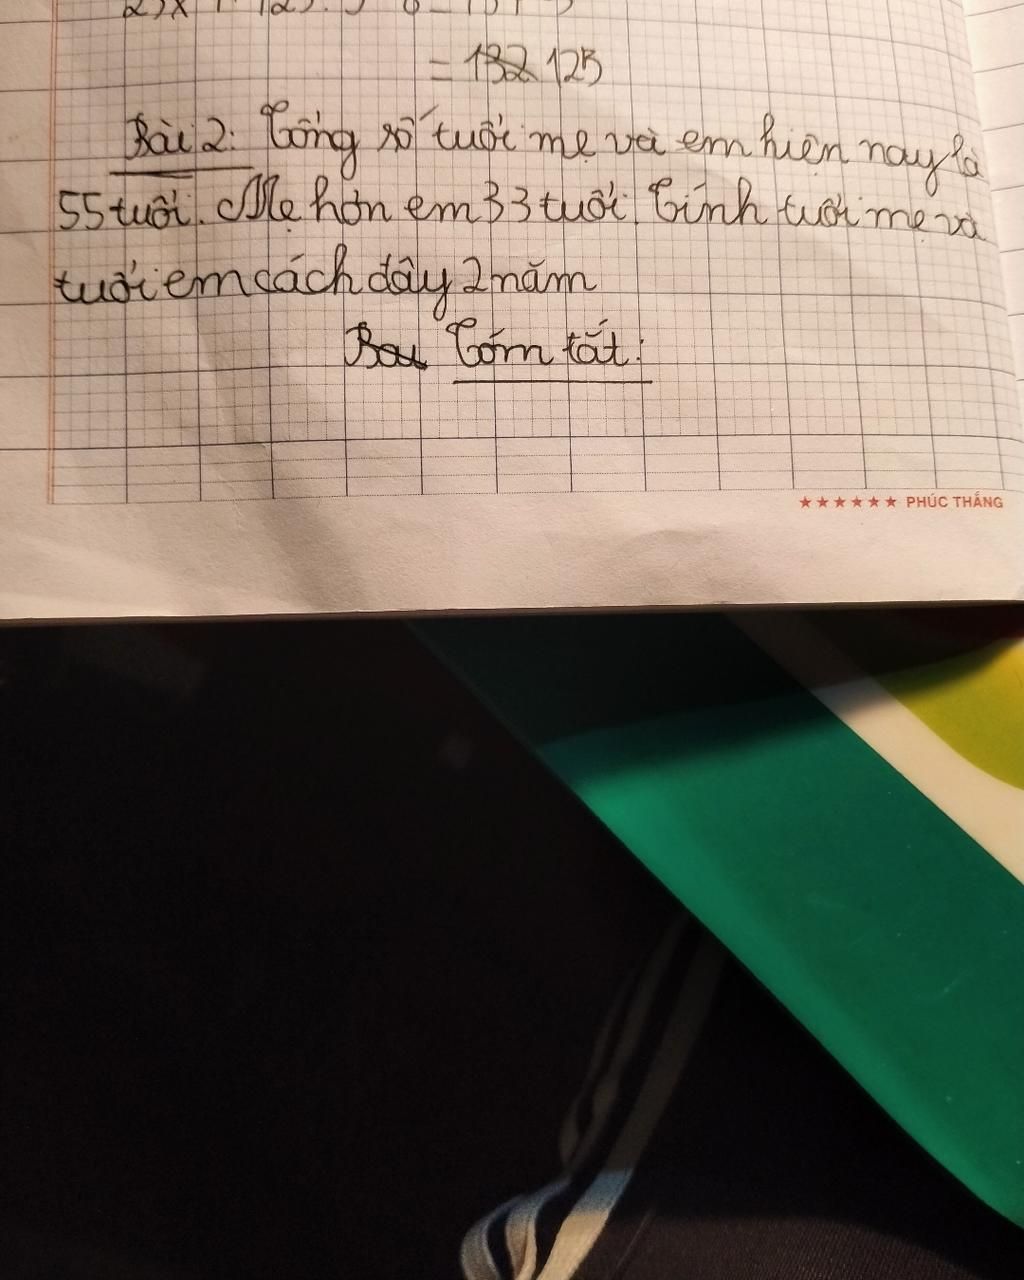 = 132 125
Bài 2: Tổng số tuổi mẹ và em hiện nay là
55 tuổi. Mẹ hơn em 33 tuổi. Tính tuổi mẹ và
tuổi em cách đây 2 năm
Tóm tắt:
★★★★★★ PHÚC THẮNG